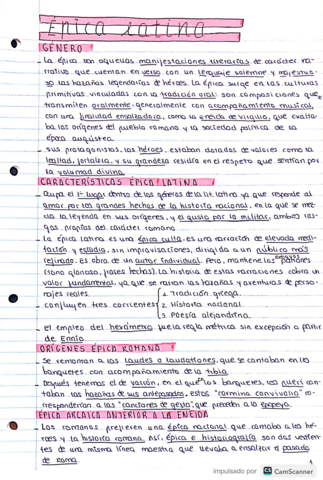 Épica latina
GÉNERO
- La épica son aquellas manifestaciones literarias de carácter na-
rrativo que cuentan en verso con un lenguaje solemne y majestuo-
so las hazañas legendarias de héroes. La épica surge en las culturas
primitivas vinculadas con la tradición oral: son composiciones que
transmiten oralmente, generalmente con acompañamiento musical,
con una finalidad ensalzadora, como la eneida de virgilio, que exalta-
ba los orígenes del pueblo romano y la sociedad política de la
época augústea.
- sus protagonistas, los héroes, estaban dotados de valores como la
lealtad, fortaleza, y su grandeza residía en el respeto que sentían por
la voluntad divina.
CARACTERÍSTICAS ÉPICA LATINA
- Ocupa el 1er lugar dentro de los géneros de la lit. latina ya que responde al
amor por los grandes hechos de la historia nacional, en la que se mez-
cla la leyenda en sus orígenes, y el gusto por lo militar, ambos ras-
gos propios del carácter romano
- La épica latina es una épica culta: es una narración de elevada medi-
tación y estudio, sin improvisaciones, dirigida a un público más
refinado: es obra de un autor individual. Pero, mantiene los patrones
(tono glorioso, frases hechas). La historia de estas narraciones cobra un
valor fundamental, ya que se narran las hazañas y aventuras de perso-
najes reales.
- confluyen tres corrientes
1. Tradición griega
2. Historia nacional
3. Poesía alejandrina
- el empleo del hexámetro fue la regla métrica sin excepción a partir
de Ennio.
ORÍGENES ÉPICA ROMANA
- Se remontan a las laudes o laudationes, que se cantaban en los
banquetes con acompañamiento de la tibia
- Después tenemos el de varrón, en el que los banquetes, los pueri can-
taban las hazañas de sus antepasados, estos "carmina convivalia" co-
rresponderían a las "canciones de gesta", que preceden a la epopeya.
ÉPICA ARCAICA ANTERIOR A LA ENEIDA
- Los romanos prefieren una épica nacional que cantaba a los hé-
roes y la historia romana. Así, épica e historiografía son dos vertien-
tes de una misma línea maestra que llevaba a ensalzar el pasado
de Roma.
impulsado por CS CamScanner